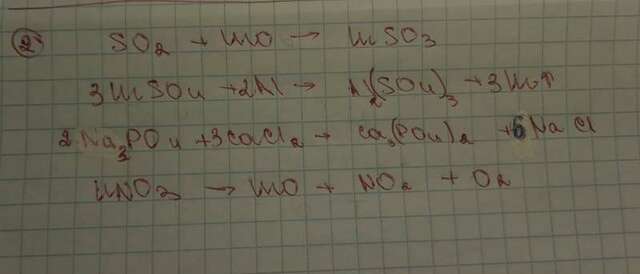 2. SO₂ + H₂O → H₂SO₃
3H₂SO₄ + 2Al → Al₂(SO₄)₃ + 3H₂↑
2Na₃PO₄ + 3CaCl₂ → Ca₃(PO₄)₂ + 6NaCl
HNO₃ → H₂O + NO₂ + O₂